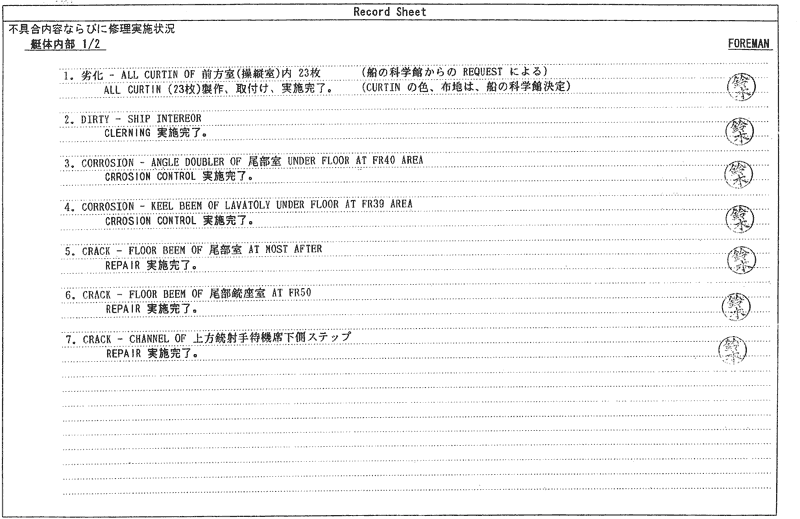 Record Sheet
不具合内容ならびに修理実施状況
艇体内部 1/2 FOREMAN
1. 劣化 - ALL CURTIN OF 前方室(操縦室)内 23枚 (船の科学館からの REQUEST による)
ALL CURTIN (23枚)製作、取付け、実施完了。 (CURTIN の色、布地は、船の科学館決定)
鈴木
2. DIRTY - SHIP INTEREOR
CLERNING 実施完了。
鈴木
3. CORROSION - ANGLE DOUBLER OF 尾部室 UNDER FLOOR AT FR40 AREA
CRROSION CONTROL 実施完了。
鈴木
4. CORROSION - KEEL BEEM OF LAVATOLY UNDER FLOOR AT FR39 AREA
CRROSION CONTROL 実施完了。
鈴木
5. CRACK - FLOOR BEEM OF 尾部室 AT MOST AFTER
REPAIR 実施完了。
鈴木
6. CRACK - FLOOR BEEM OF 尾部銃座室 AT FR50
REPAIR 実施完了。
鈴木
7. CRACK - CHANNEL OF 上方銃射手待機席下側ステップ
REPAIR 実施完了。
鈴木